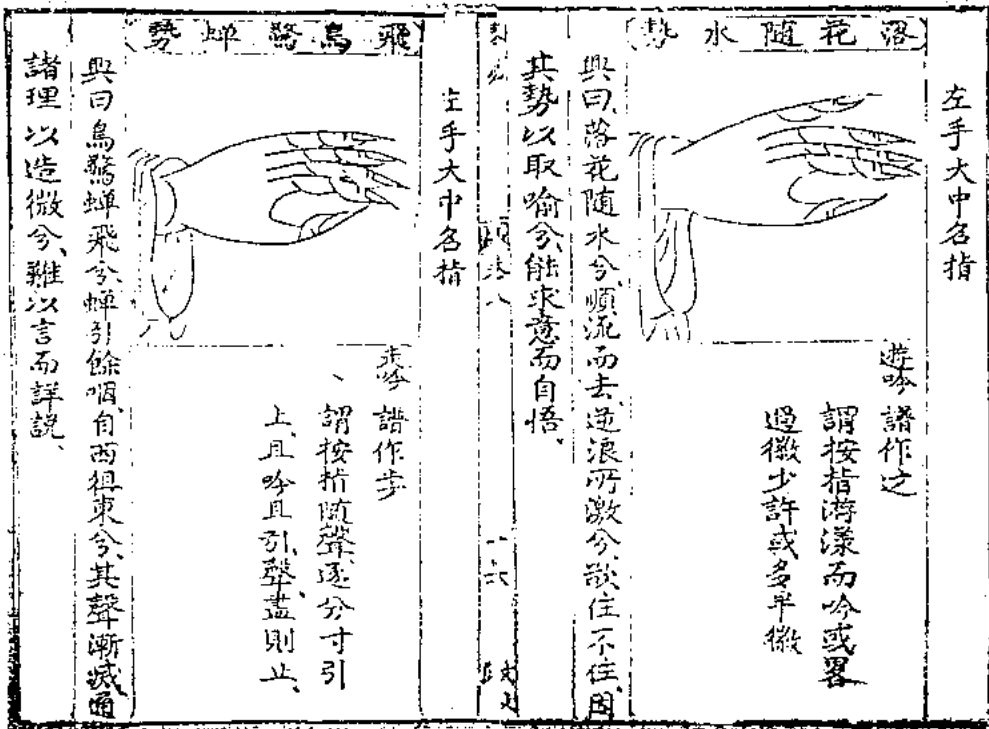 左手大中名指
落花隨水勢
遊吟 譜作辶
謂按指游漾而吟或畧
過徽少許或多半徽
興曰落花隨水兮順流而去逆浪所激兮欲住不住因
其勢以取喻兮能求意而自悟
左手大中名指
飛鳥驚蟬勢
走吟 譜作步
謂按指隨聲逐分寸引
上且吟且引聲盡則止
興曰鳥驚蟬飛兮蟬引餘咽自西徂東兮其聲漸減通
諸理以造微兮難以言而詳說